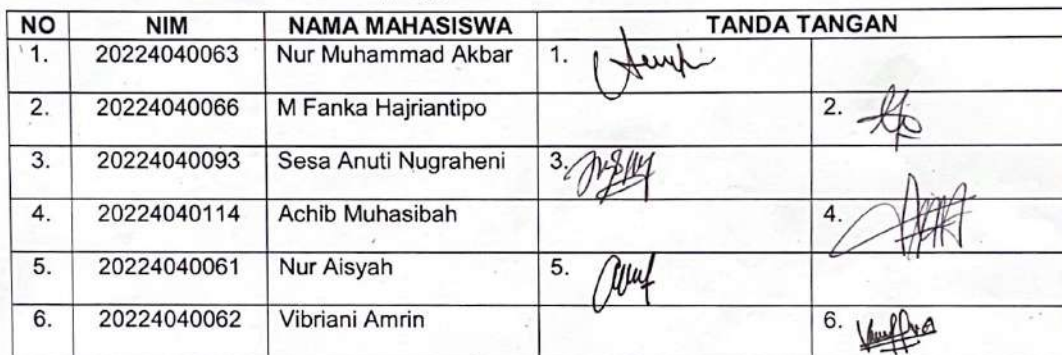 NO NIM NAMA MAHASISWA TANDA TANGAN
1. 20224040063 Nur Muhammad Akbar 1.
2. 20224040066 M Fanka Hajriantipo 2.
3. 20224040093 Sesa Anuti Nugraheni 3.
4. 20224040114 Achib Muhasibah 4.
5. 20224040061 Nur Aisyah 5.
6. 20224040062 Vibriani Amrin 6.